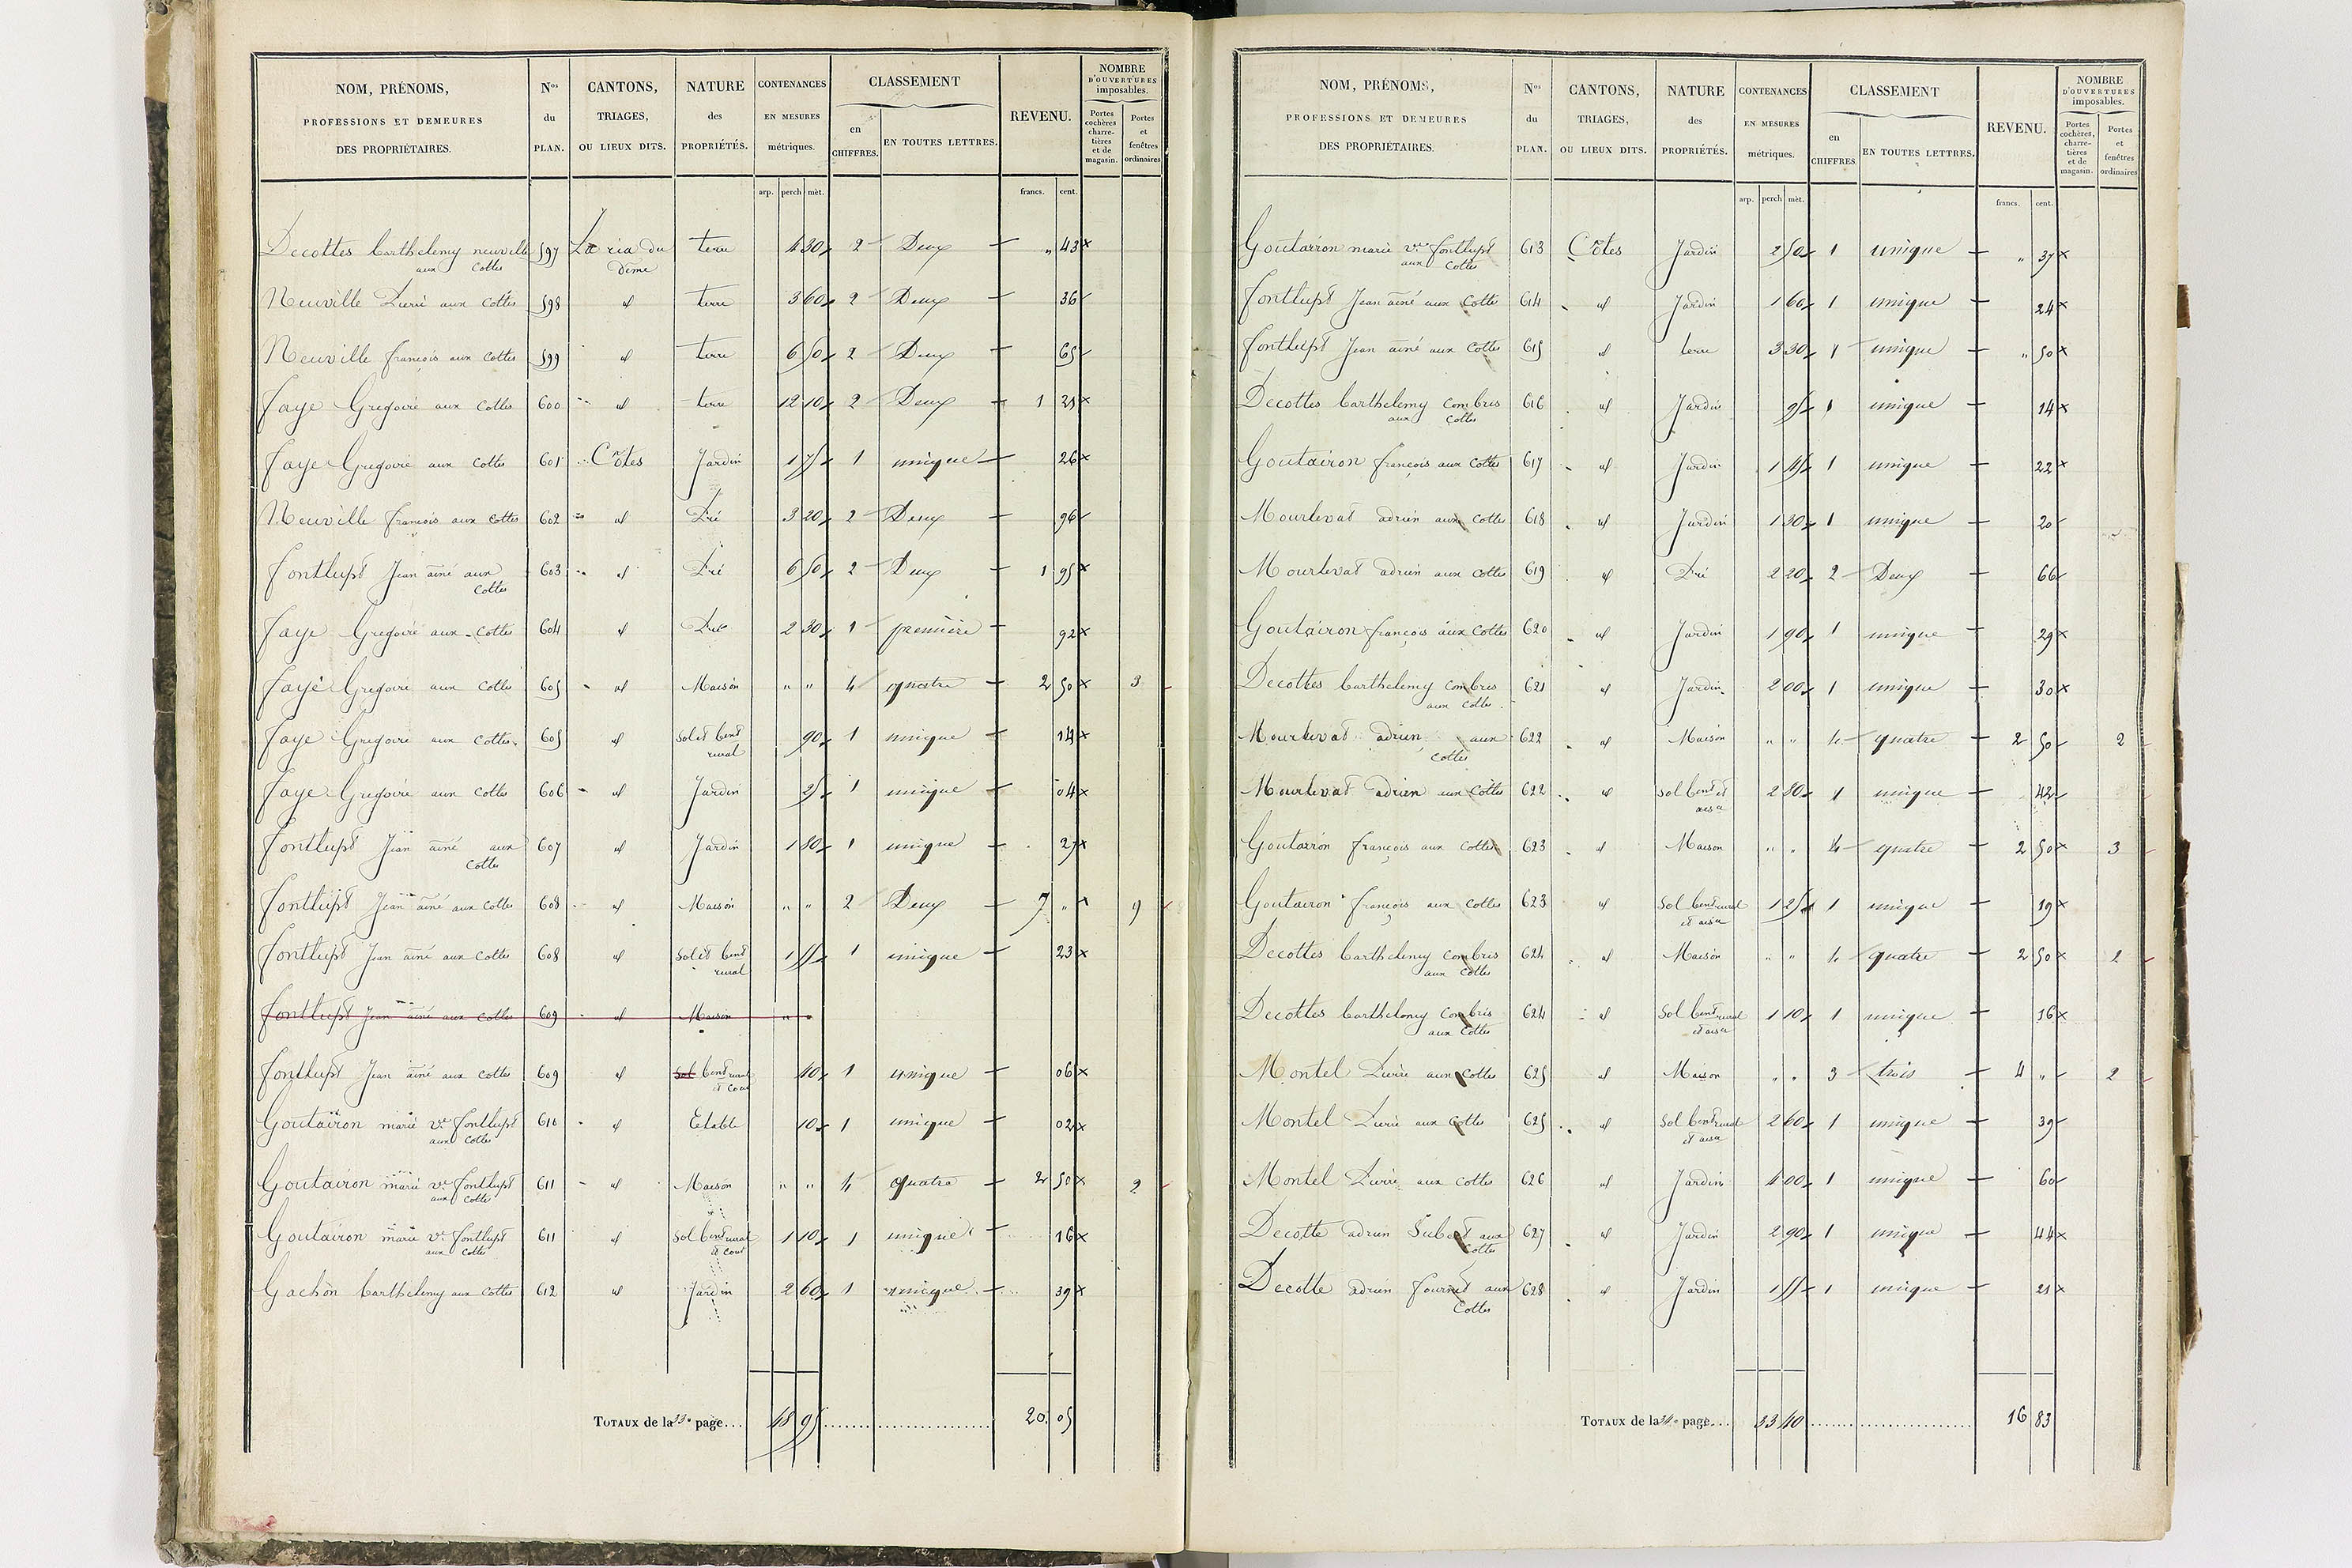 NOM, PRÉNOMS, PROFESSIONS ET DEMEURES DES PROPRIÉTAIRES. Nos du PLAN. CANTONS, TRIAGES, OU LIEUX DITS. NATURE des PROPRIÉTÉS. CONTENANCES EN MESURES métriques. CLASSEMENT en CHIFFRES. EN TOUTES LETTRES. REVENU. NOMBRE D'OUVERTURES imposables. Portes cochères charre-tières et de magasin. Portes et fenêtres ordinaires
arp. perch mèt. francs. cent.
Decottes barthelemy neuville aux Cottes 597 La ria du terre 4 30 2 Deux " 43
dime
Neuville Pierre aux Cottes 598 id terre 3 60 2 Deux 36
Neuville françois aux Cottes 599 id terre 6 50 2 Deux 65
faye Gregoire aux Cottes 600 id terre 12 10 2 Deux 1 21
faye Gregoire aux Cottes 601 Côtes Jardin 1 75 1 unique 26
Neuville françois aux Cottes 602 id Pré 3 20 2 Deux 96
fontlupt Jean ainé aux Cottes 603 id Pré 6 50 2 Deux 1 95
faye Gregoire aux Cottes 604 id Pré 2 30 1 première 92
faye Gregoire aux Cottes 605 id Maison " " 4 quatre 2 50 3
faye Gregoire aux Cottes 605 id Sol et bent rural 90 1 unique 14
faye Gregoire aux Cottes 606 id Jardin 25 1 unique 04
fontlupt Jean ainé aux Cottes 607 id Jardin 1 80 1 unique 27
fontlupt Jean ainé aux Cottes 608 id Maison " " 2 Deux 7 " 9
fontlupt Jean ainé aux Cottes 608 id Sol et bent rural 1 55 1 unique 23
fontlupt Jean ainé aux Cottes 609 id Maison "
fontlupt Jean ainé aux Cottes 609 id Sol bent rural et cour 40 1 unique 06
Goutairon marie ve fontlupt aux Cottes 610 id Etable 10 1 unique 02
Goutairon marie ve fontlupt aux Cottes 611 id Maison " " 4 quatre 2 50 2
Goutairon marie ve fontlupt aux Cottes 611 id Sol bent rural et cour 1 10 1 unique 16
Gachon barthelemy aux Cottes 612 id Jardin 2 60 1 unique 39
TOTAUX de la 33e page.... 48 95 20 05
NOM, PRÉNOMS, PROFESSIONS ET DEMEURES DES PROPRIÉTAIRES. Nos du PLAN. CANTONS, TRIAGES, OU LIEUX DITS. NATURE des PROPRIÉTÉS. CONTENANCES EN MESURES métriques. CLASSEMENT en CHIFFRES EN TOUTES LETTRES. REVENU. NOMBRE D'OUVERTURES imposables. Portes cochères, charre-tières et de magasin. Portes et fenêtres ordinaires
arp. perch mèt. francs. cent.
Goutairon marie ve fontlupt aux Cottes 613 Côtes Jardin 2 50 1 unique " 37
fontlupt Jean ainé aux Cottes 614 id Jardin 1 60 1 unique 24
fontlupt Jean ainé aux Cottes 615 id terre 3 30 1 unique " 50
Decottes barthelemy combris aux Cottes 616 id Jardin 95 1 unique 14
Goutairon françois aux Cottes 617 id Jardin 1 45 1 unique 22
Mourlevat adrien aux Cottes 618 id Jardin 1 30 1 unique 20
Mourlevat adrien aux Cottes 619 id Pré 2 20 2 Deux 66
Goutairon françois aux Cottes 620 id Jardin 1 90 1 unique 29
Decottes barthelemy combris aux Cottes 621 id Jardin 2 00 1 unique 30
Mourlevat adrien aux Cottes 622 id Maison " " 4 quatre 2 50 2
Mourlevat adrien aux Cottes 622 id Sol bent et aisce 2 80 1 unique 42
Goutairon françois aux Cottes 623 id Maison " " 4 quatre 2 50 3
Goutairon françois aux Cottes 623 id Sol bent rural et aisce 1 25 1 unique 19
Decottes barthelemy combris aux Cottes 624 id Maison " " 4 quatre 2 50 2
Decottes barthelemy combris aux Cottes 624 id Sol bent rural et aisce 1 10 1 unique 16
Montel Pierre aux Cottes 625 id Maison " " 3 trois 4 " 2
Montel Pierre aux Cottes 625 id Sol bent rural et aisce 2 60 1 unique 39
Montel Pierre aux Cottes 626 id Jardin 4 00 1 unique 60
Decotte adrien aux Cottes 627 id Jardin 2 90 1 unique 44
Decotte adrien fournet aux Cottes 628 id Jardin 1 55 1 unique 21
TOTAUX de la 34e page.... 33 40 16 83